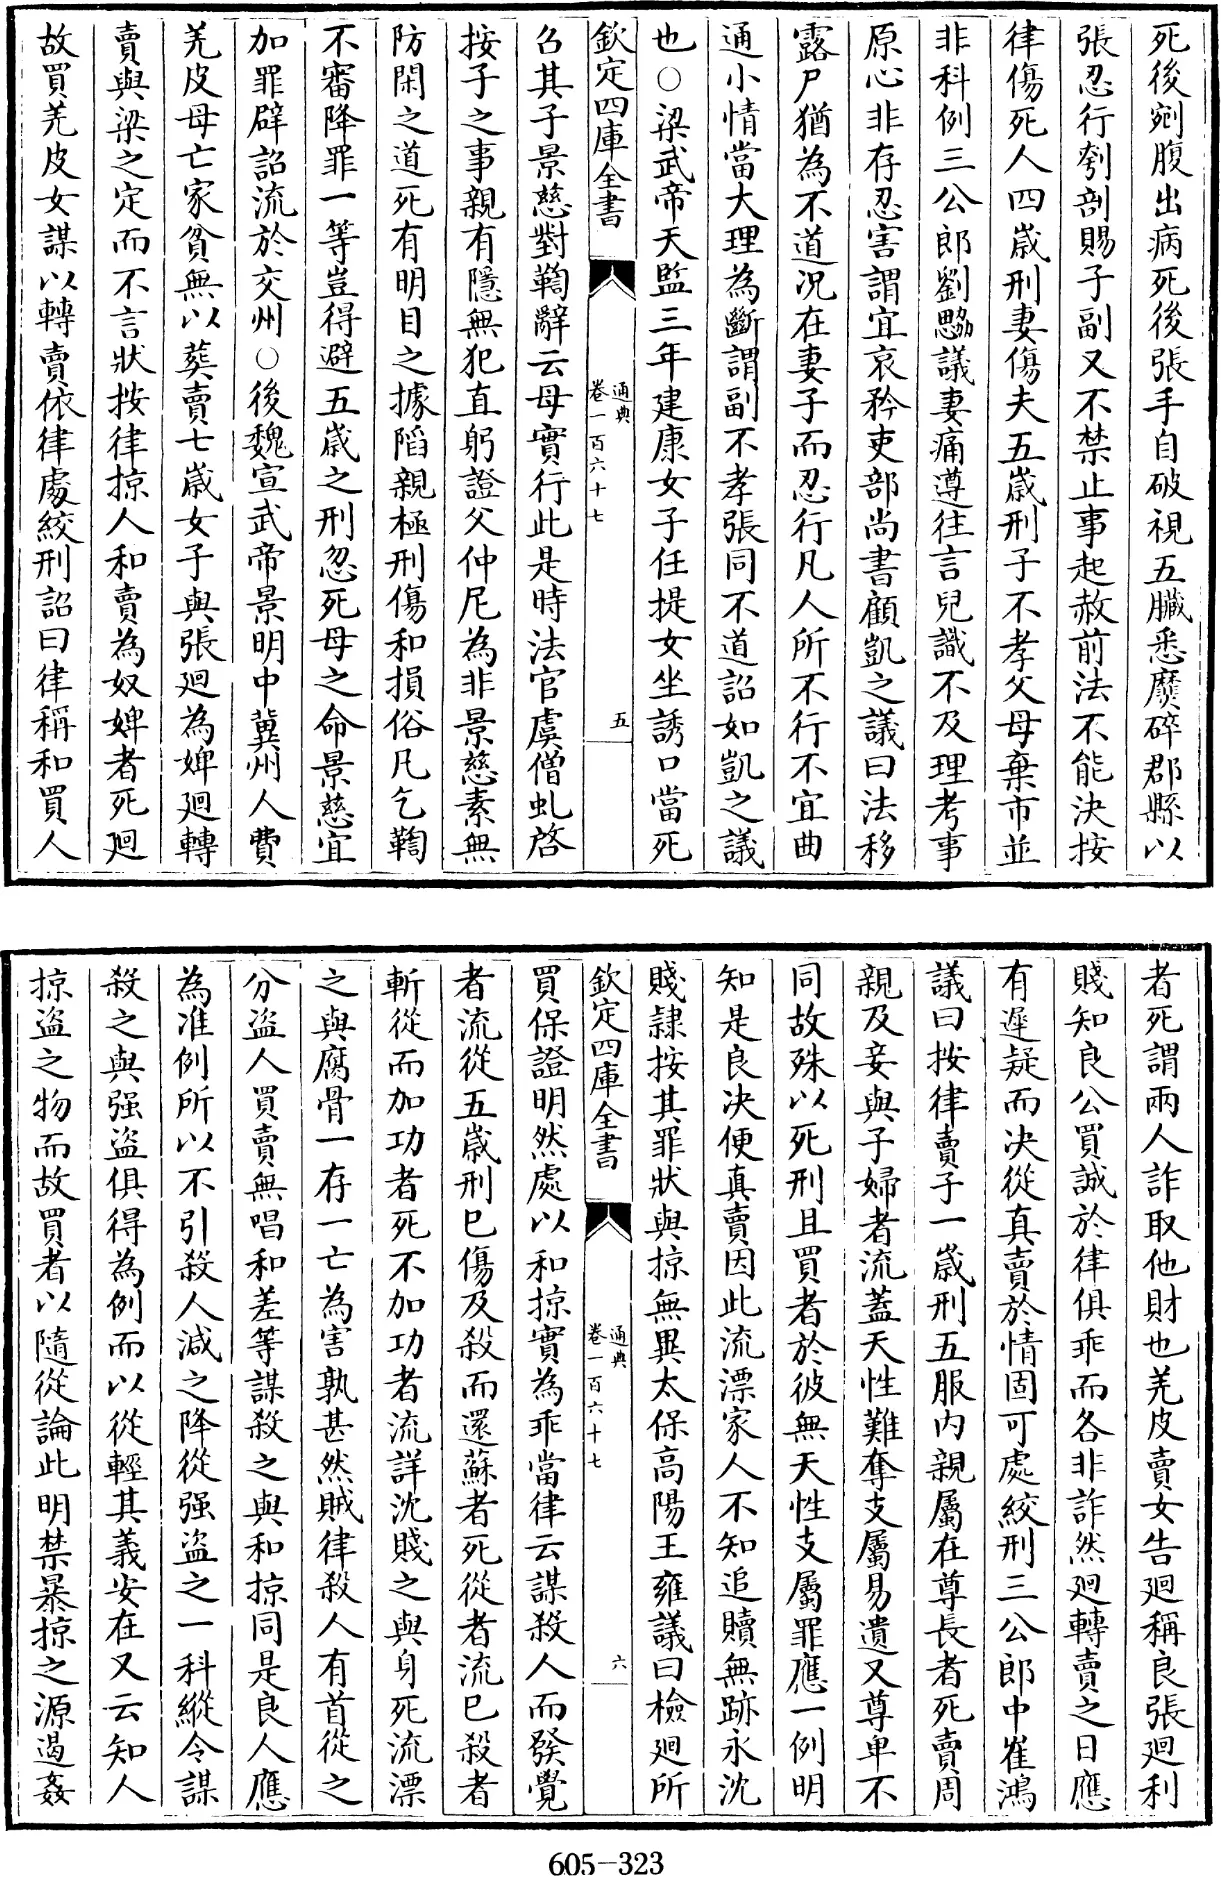 死後剜腹出病死後張手自破視五臟悉縻碎郡縣以
張忍行刳剖賜子副又不禁止事起赦前法不能決按
律傷死人四嵗刑妻傷夫五嵗刑子不孝父母棄市並
非科例三公郎劉勰議妻痛遵往言兒識不及理考事
原心非存忍害謂宜哀矜吏部尚書顧凱之議曰法移
露尸猶為不道况在妻子而忍行凡人所不行不宜曲
通小情當大理為斷謂副不孝張同不道詔如凱之議
也○梁武帝天監三年建康女子任提女坐誘口當死
欽定四庫全書
通典
卷一百六十七
五
召其子景慈對鞫辭云母實行此是時法官虞僧虬啓
按子之事親有隱無犯直躬證父仲尼為非景慈素無
防閑之道死有明目之據陷親極刑傷和損俗凡乞鞫
不審降罪一等豈得避五嵗之刑忽死母之命景慈宜
加罪辟詔流於交州○後魏宣武帝景明中冀州人費
羌皮母亡家貧無以葬賣七嵗女子與張廻為婢廻轉
賣與梁之定而不言狀按律掠人和賣為奴婢者死廻
故買羌皮女謀以轉賣依律處絞刑詔曰律稱和買人
者死謂兩人詐取他財也羌皮賣女告廻稱良張廻利
賤知良公買誠於律俱乖而各非詐然廻轉賣之日應
有遲疑而决從真賣於情固可處絞刑三公郎中崔鴻
議曰按律賣子一嵗刑五服内親屬在尊長者死賣周
親及妾與子婦者流葢天性難奪支屬易遺又尊卑不
同故殊以死刑且買者於彼無天性支屬罪應一例明
知是良决便真賣因此流漂家人不知追贖無跡永沈
賤隷按其罪狀與掠無異太保高陽王雍議曰檢廻所
欽定四庫全書
通典
卷一百六十七
六
買保證明然處以和掠實為乖當律云謀殺人而發覺
者流從五嵗刑已傷及殺而還蘇者死從者流已殺者
斬從而加功者死不加功者流詳沈賤之與身死流漂
之與腐骨一存一亡為害孰甚然賊律殺人有首從之
分盗人買賣無唱和差等謀殺之與和掠同是良人應
為准例所以不引殺人減之降從强盗之一科縱令謀
殺之與强盗俱得為例而以從輕其義安在又云知人
掠盗之物而故買者以隨從論此明禁暴掠之源遏姦
605-323